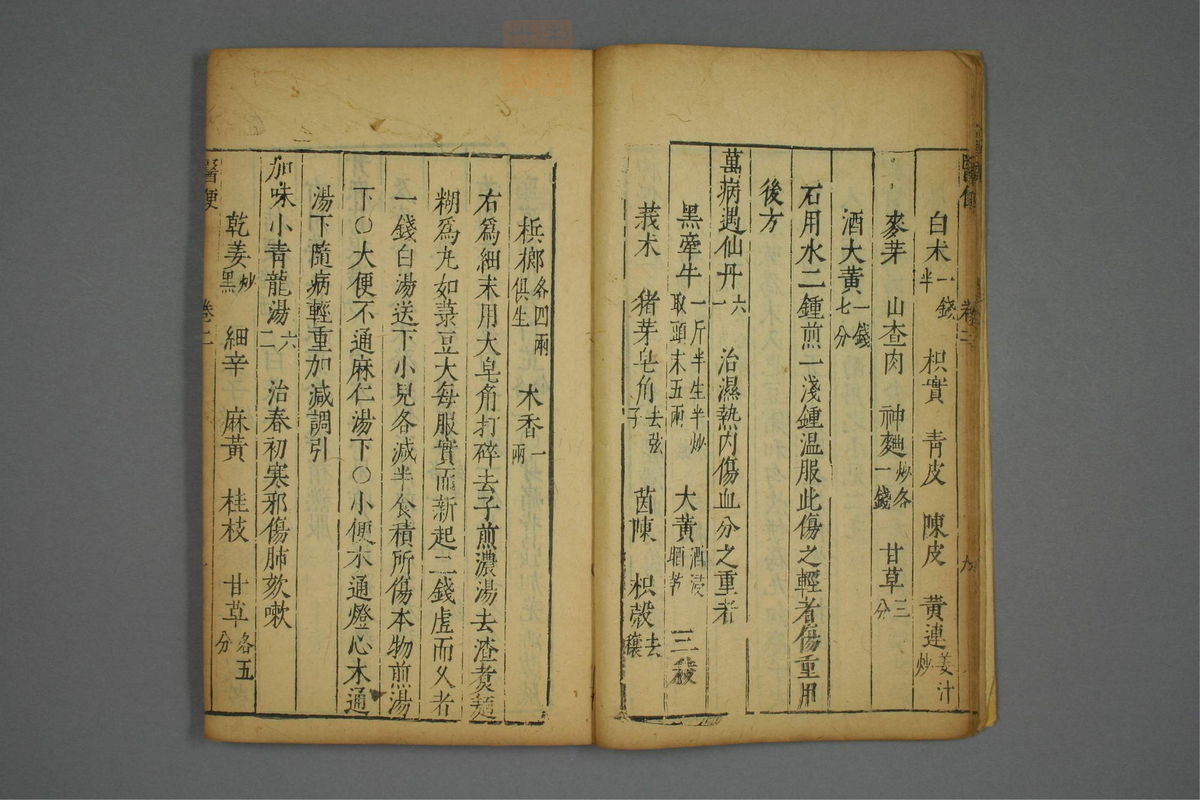 醫便 卷二 九
白术一錢半 枳實 青皮 陳皮 黃連姜汁炒
麥芽 山查肉 神麯炒各一錢 甘草三分
酒大黃一錢七分
右用水二鍾煎一淺鍾温服此傷之輕者傷重用
後方
萬病遇仙丹六一 治濕熱内傷血分之重者
黑牽牛一斤半生半炒取頭末五兩 大黃酒浸晒者 三稜
莪术 猪芽皂角去弦子 茵陳 枳殻去穰
檳榔各四兩俱生 木香一兩
右爲細末用大皂角打碎去子煎濃湯去渣煑麵
糊爲丸如菉豆大每服實而新起二錢虛而久者
一錢白湯送下小兒各减半食積所傷本物煎湯
下〇大便不通麻仁湯下〇小便不通燈心木通
湯下隨病輕重加减調引
加味小青龍湯六二 治春初寒邪傷肺欬嗽
乾姜炒黑 細辛 麻黃 桂枝 甘草各五分
醫便 卷二